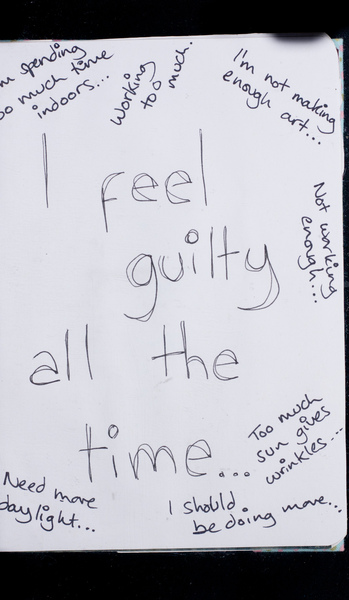 m spending
oo much time
indoors...
working
too much.
I'm not making
enough art...
I feel
guilty
all the
time...
Not working
enough...
Too much
sun gives
wrinkles...
Need more
daylight...
I should
be doing more...